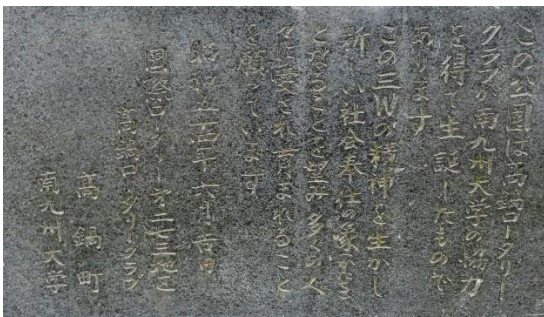 この公園は高鍋ロータリー
クラブが南九州大学の協力
を得て生誕したもので
あります
この三Wの精神を生かし
新しい社会奉仕の象がこゝ
となることを望み多くの人
々に愛され育まれること
を願っています
昭和五十 年六月吉日
国際ロータリー才二七三地区
高鍋ロータリークラブ
高鍋町
南九州大学